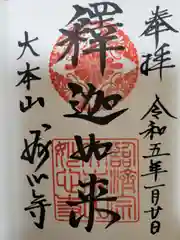 奉拝
令和五年一月廿日
釋迦如来
大本山
妙心寺